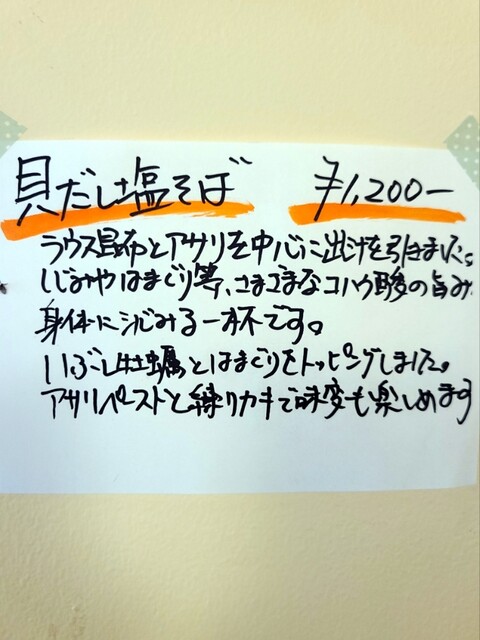 貝だし塩そば ¥1,200-
ラウス昆布とアサリを中心に出汁を引きました。
しじみやはまぐり等、さまざまなコハク酸の旨み
身体にしみる一杯です。
いぶし牡蠣とはまぐりをトッピングしました。
アサリペーストと練りカキで味変も楽しめます